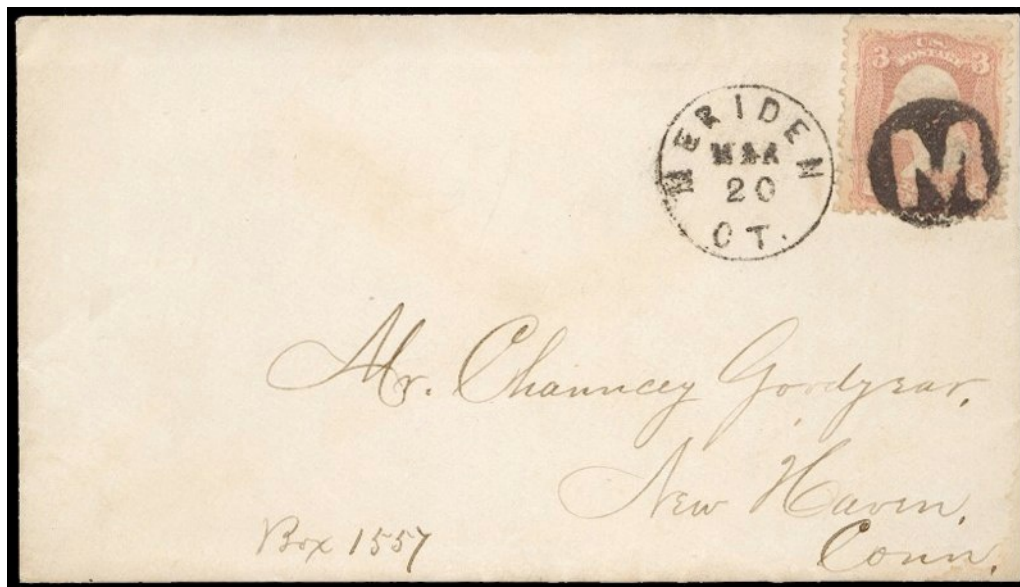 3 U.S. POSTAGE 3
M
MERIDEN
MAR
20
CT.
Mr. Chauncey Goodyear,
New Haven,
Conn.
Box 1557